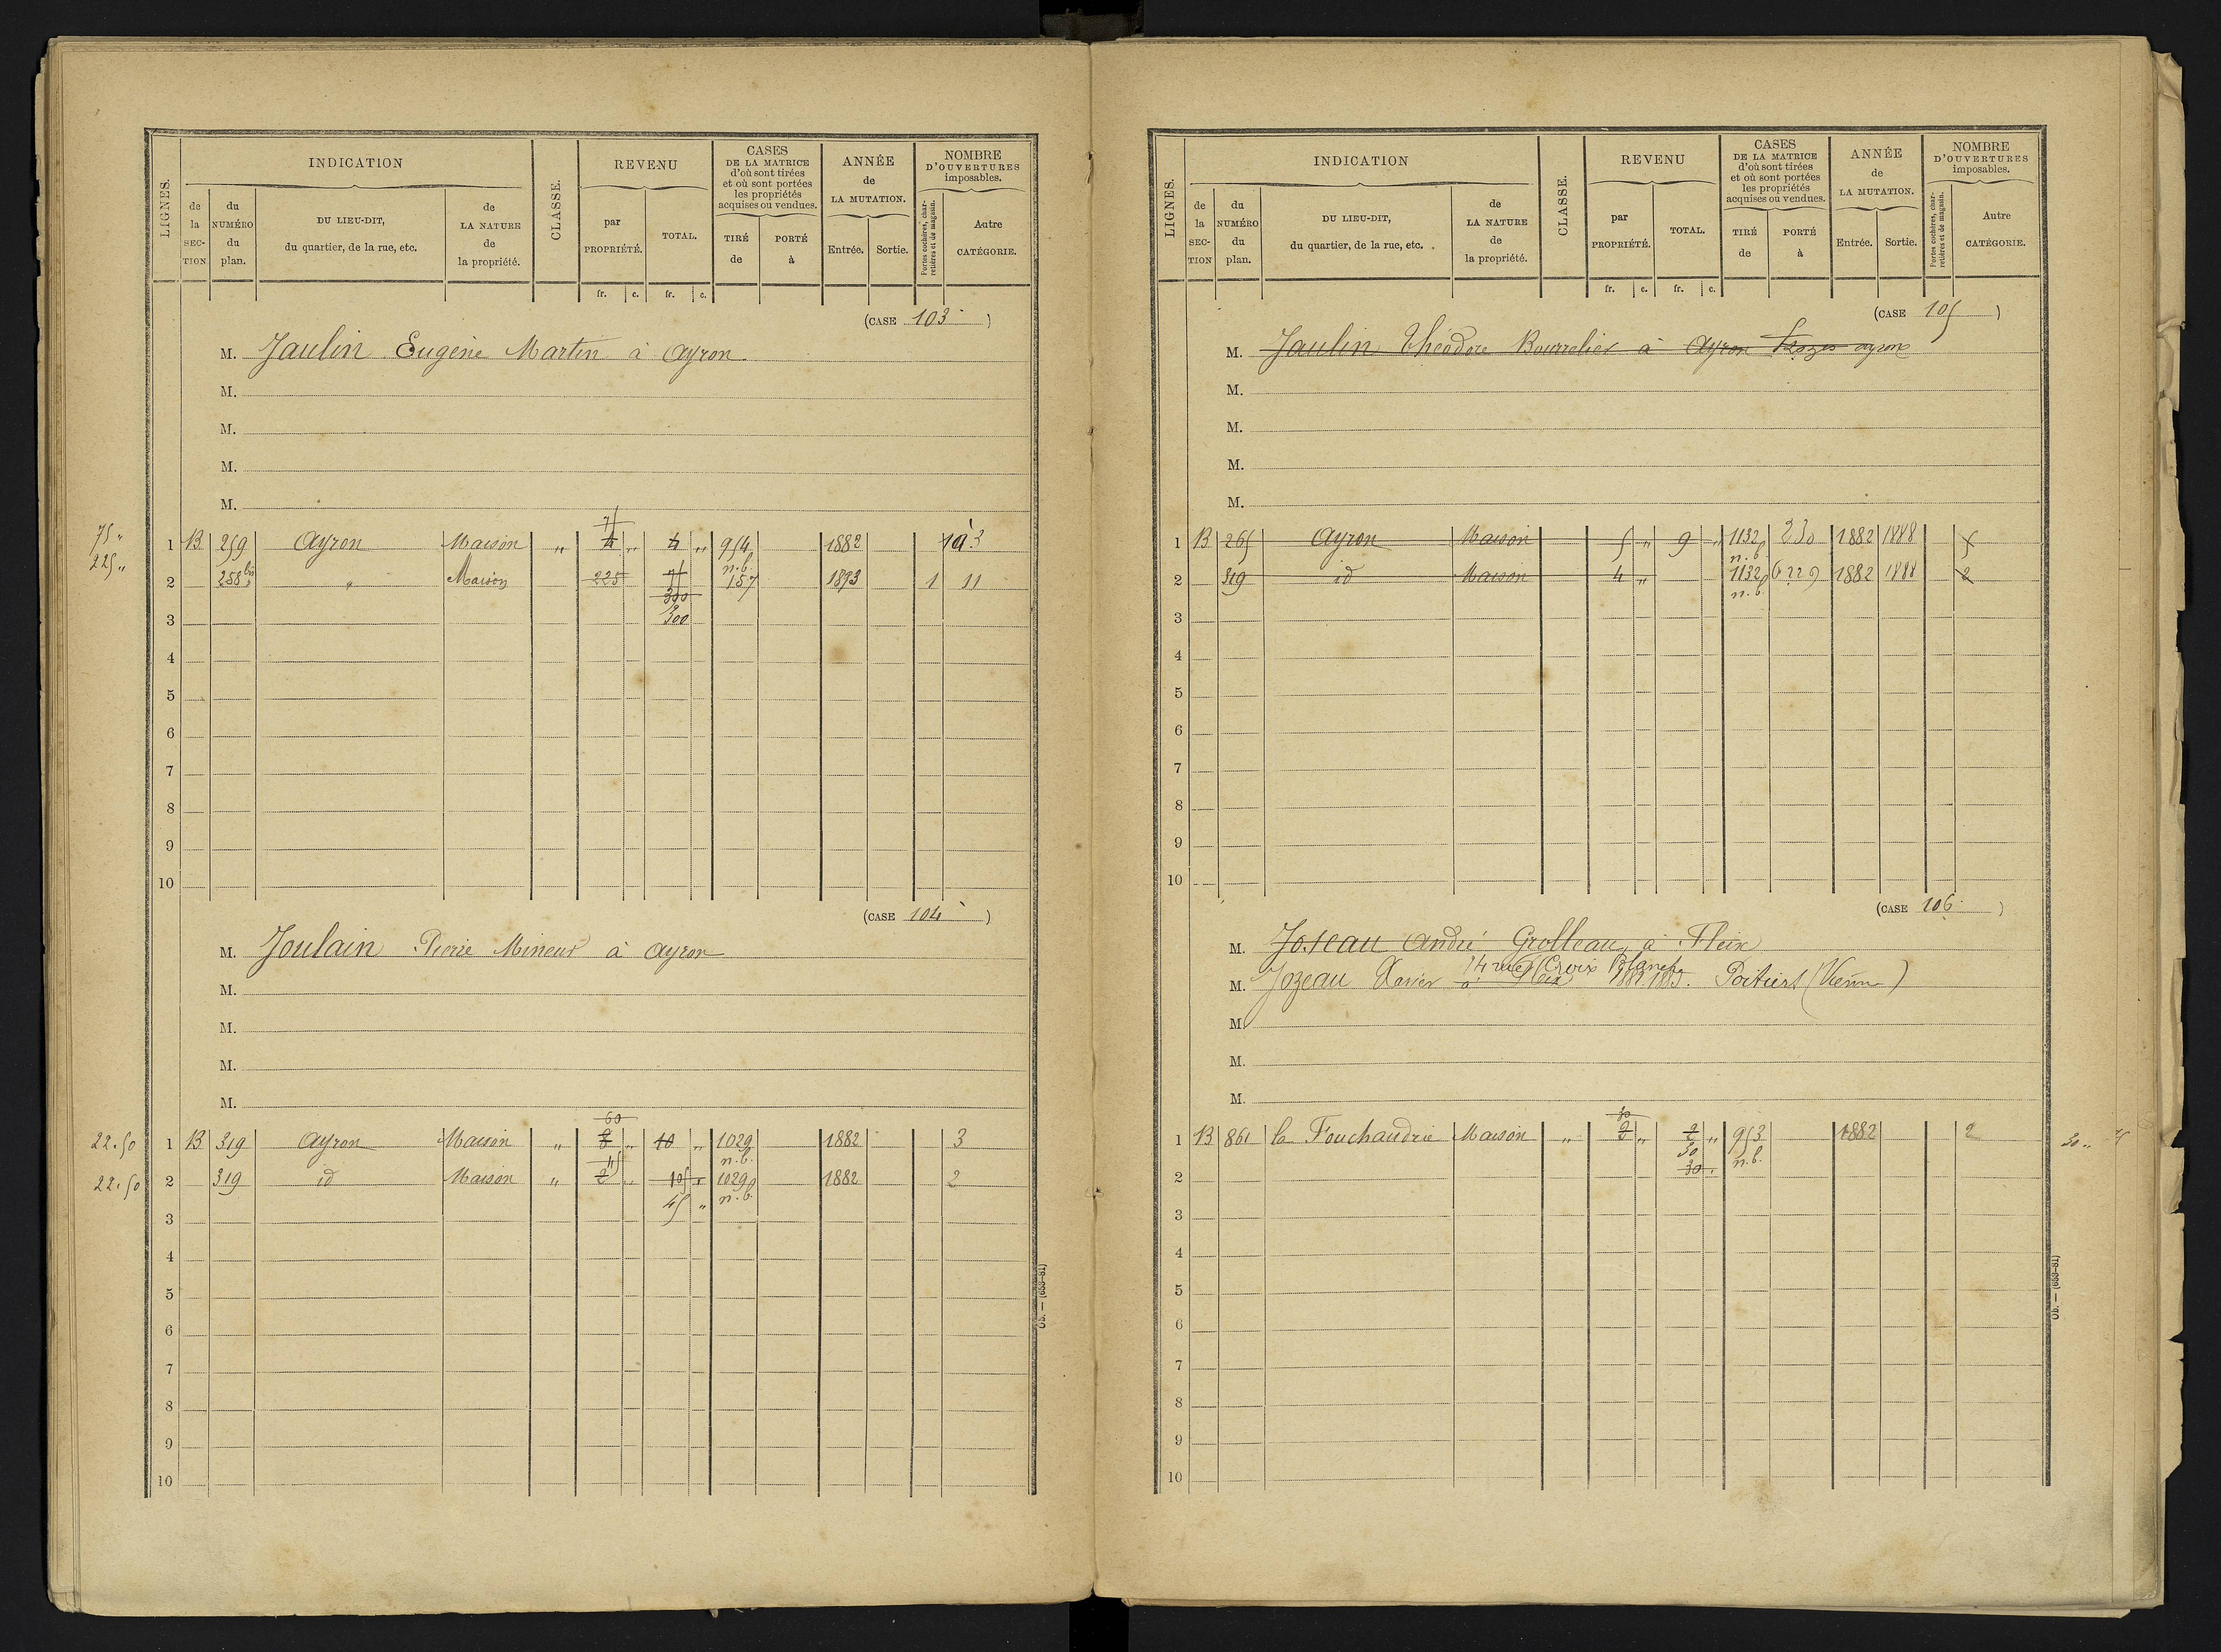 LIGNES.
INDICATION
CLASSE.
REVENU
CASES
DE LA MATRICE
d'où sont tirées
et où sont portées
les propriétés
acquises ou vendues.
ANNÉE
de
LA MUTATION.
NOMBRE
D'OUVERTURES
imposables.
de la SECTION
du NUMÉRO du plan.
DU LIEU-DIT,
du quartier, de la rue, etc.
de LA NATURE de la propriété.
par PROPRIÉTÉ.
TOTAL.
TIRÉ de
PORTÉ à
Entrée.
Sortie.
Portes cochères, charretières et de magasin.
Autre CATÉGORIE.
fr. c. fr. c.
(CASE 103)
M. Jaulin Eugène Martin à Ayron
M.
M.
M.
M.
75 "
1 B 259 Ayron Maison " 4 " 4 " 954 n.b. 1882 3
225 "
2 258 bis " Maison 225 157 1893 1 11
300
3 300
4
5
6
7
8
9
10
(CASE 104)
M. Joulain Pierre Mineur à Ayron
M.
M.
M.
M.
60
22.50 1 B 319 Ayron Maison " 8 " 10 " 1029 n.b. 1882 3
45
22.50 2 319 id Maison " 2 " 105 " 1029 n.b. 1882 2
3 45 "
4
5
6
7
8
9
10
Ob. — (653-81)
LIGNES.
INDICATION
CLASSE.
REVENU
CASES
DE LA MATRICE
d'où sont tirées
et où sont portées
les propriétés
acquises ou vendues.
ANNÉE
de
LA MUTATION.
NOMBRE
D'OUVERTURES
imposables.
de la SECTION
du NUMÉRO du plan.
DU LIEU-DIT,
du quartier, de la rue, etc.
de LA NATURE de la propriété.
par PROPRIÉTÉ.
TOTAL.
TIRÉ de
PORTÉ à
Entrée.
Sortie.
Portes cochères, charretières et de magasin.
Autre CATÉGORIE.
fr. c. fr. c.
(CASE 105)
M. Jaulin Théodore Bourrelier à Ayron
M.
M.
M.
M.
1 B 265 Ayron Maison 5 " 9 " 1132 n.b. 230 1882 1888 5
2 319 id Maison 4 " 1132 n.b. 1882 1888 2
3
4
5
6
7
8
9
10
(CASE 106)
M. Joseau André Grolleau à Fleix
14 rue Croix Blanche
M. Jozeau Xavier à Fleix Poitiers (Vienne)
M.
M.
M.
30
1 B 861 la Fouchaudrie Maison " 2 " 2 " 953 n.b. 1882 2 30 "
30
2 30
3
4
5
6
7
8
9
10
Ob. — (653-81)